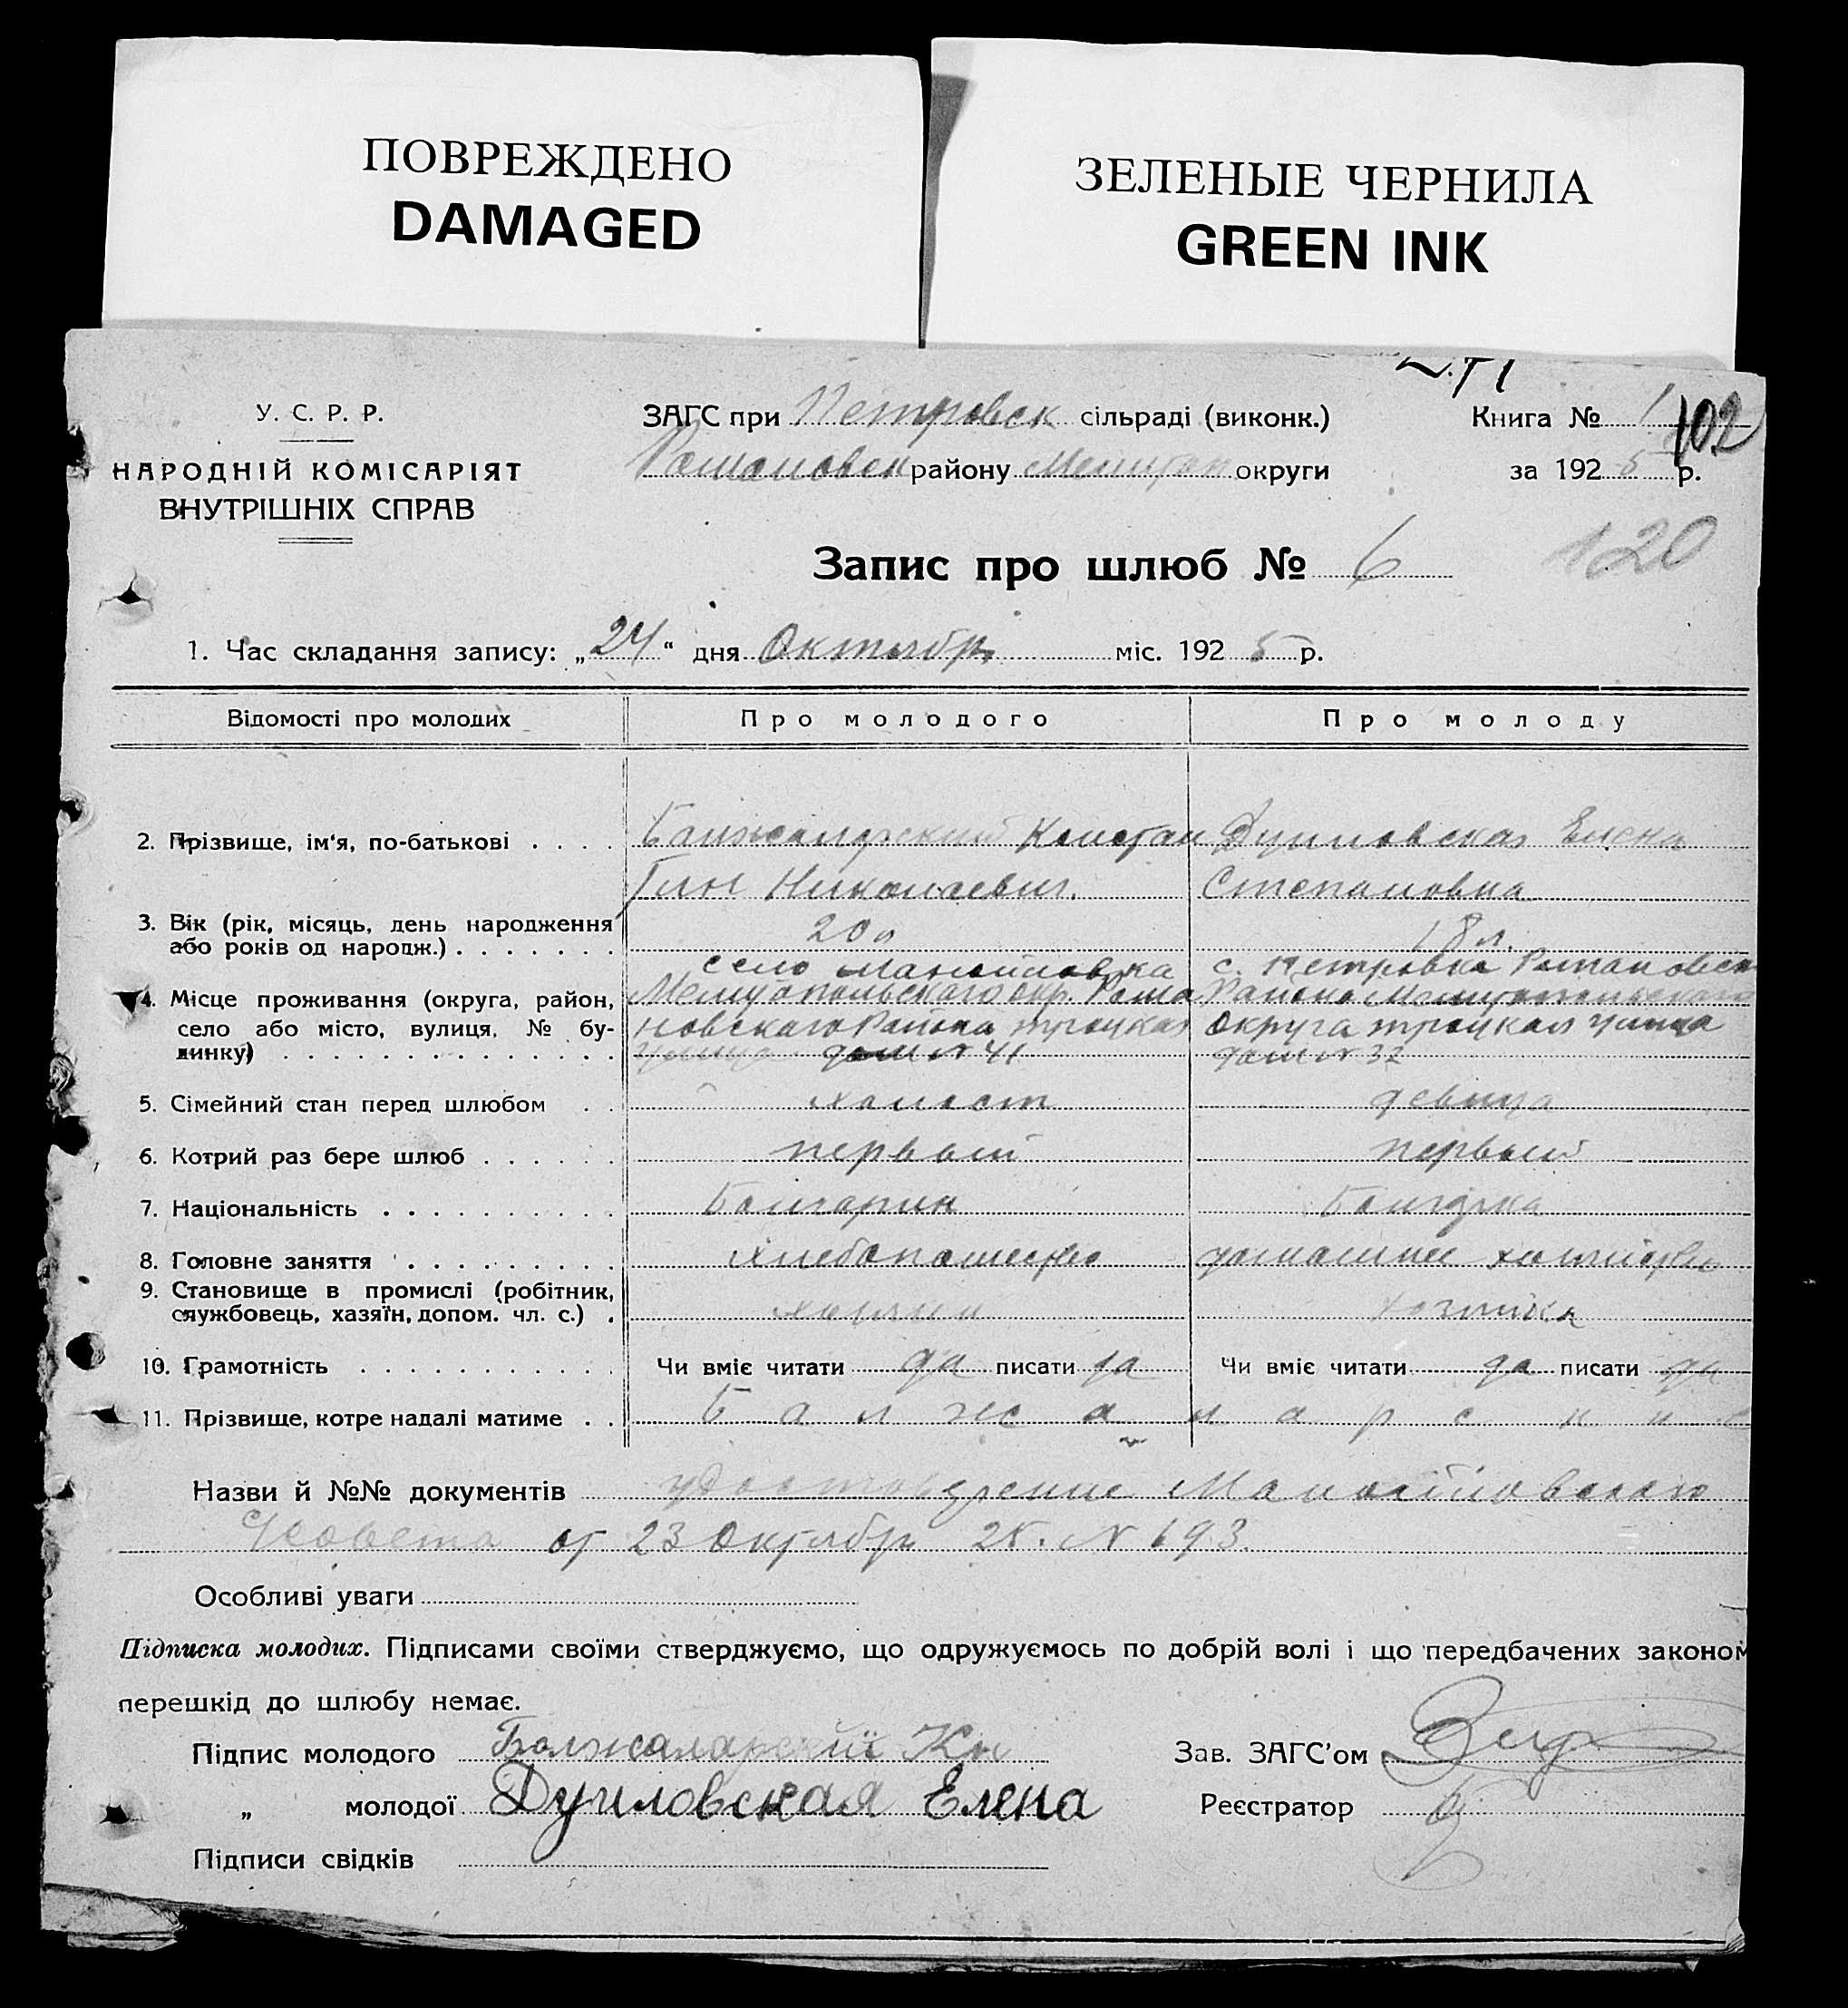 ПОВРЕЖДЕНО
DAMAGED
ЗЕЛЕНЫЕ ЧЕРНИЛА
GREEN INK
У. С. Р. Р.
НАРОДНІЙ КОМІСАРІЯТ
ВНУТРІШНІХ СПРАВ
ЗАГС при Петровск сільраді (виконк.)
Романовск району округи
Книга № 1
102
за 192 5 р.
Запис про шлюб № 6
120
1. Час складання запису: „24“ дня Октября міс. 192 5 р.
Відомості про молодих
Про молодого
Про молоду
2. Прізвище, ім'я, по-батькові
Балжаларский Констан
тин Николаевич.
Елена
Степановна
3. Вік (рік, місяць, день народження
або років од народж.)
20 л
18 л.
4. Місце проживання (округа, район,
село або місто, вулиця, № бу-
динку)
село Манойловка
Мелитопольского окр. Рома
новского Района троцкая
улица дом № 41
с. Петровка Романовск
Района Мелитопольского
Округа троцкая улица
дом № 32
5. Сімейний стан перед шлюбом
холост
девица
6. Котрий раз бере шлюб
первый
первый
7. Національність
Болгарин
Болгарка
8. Головне заняття
хлебопашество
домашнее хозяйство
9. Становище в промислі (робітник,
службовець, хазяїн, допом. чл. с.)
хозяин
хозяйка
10. Грамотність
Чи вміє читати да писати да
Чи вміє читати да писати да
11. Прізвище, котре надалі матиме
Балжаларские
Назви й №№ документів удостоверение Манойловского
от 23 Октября 25. № 693.
Особливі уваги
Підписка молодих. Підписами своїми стверджуємо, що одружуємось по добрій волі і що передбачених законом
перешкід до шлюбу немає.
Підпис молодого Балжаларский Кн
„ молодої Елена
Зав. ЗАГС'ом
Реєстратор
Підписи свідків